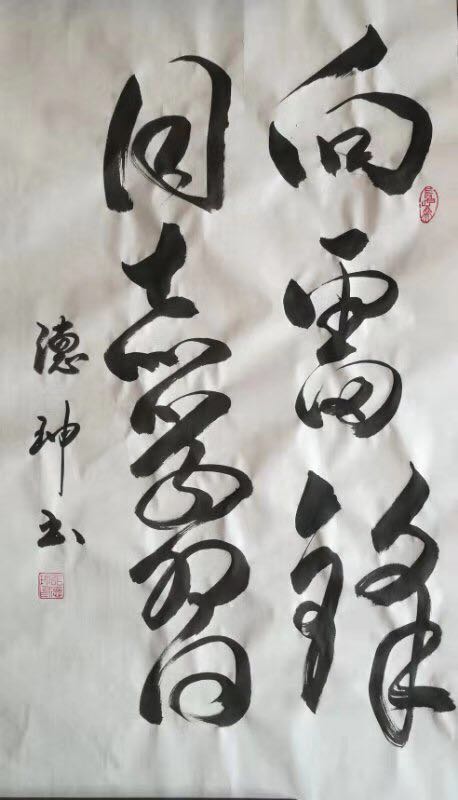 向雷锋
同志学习
德珅书